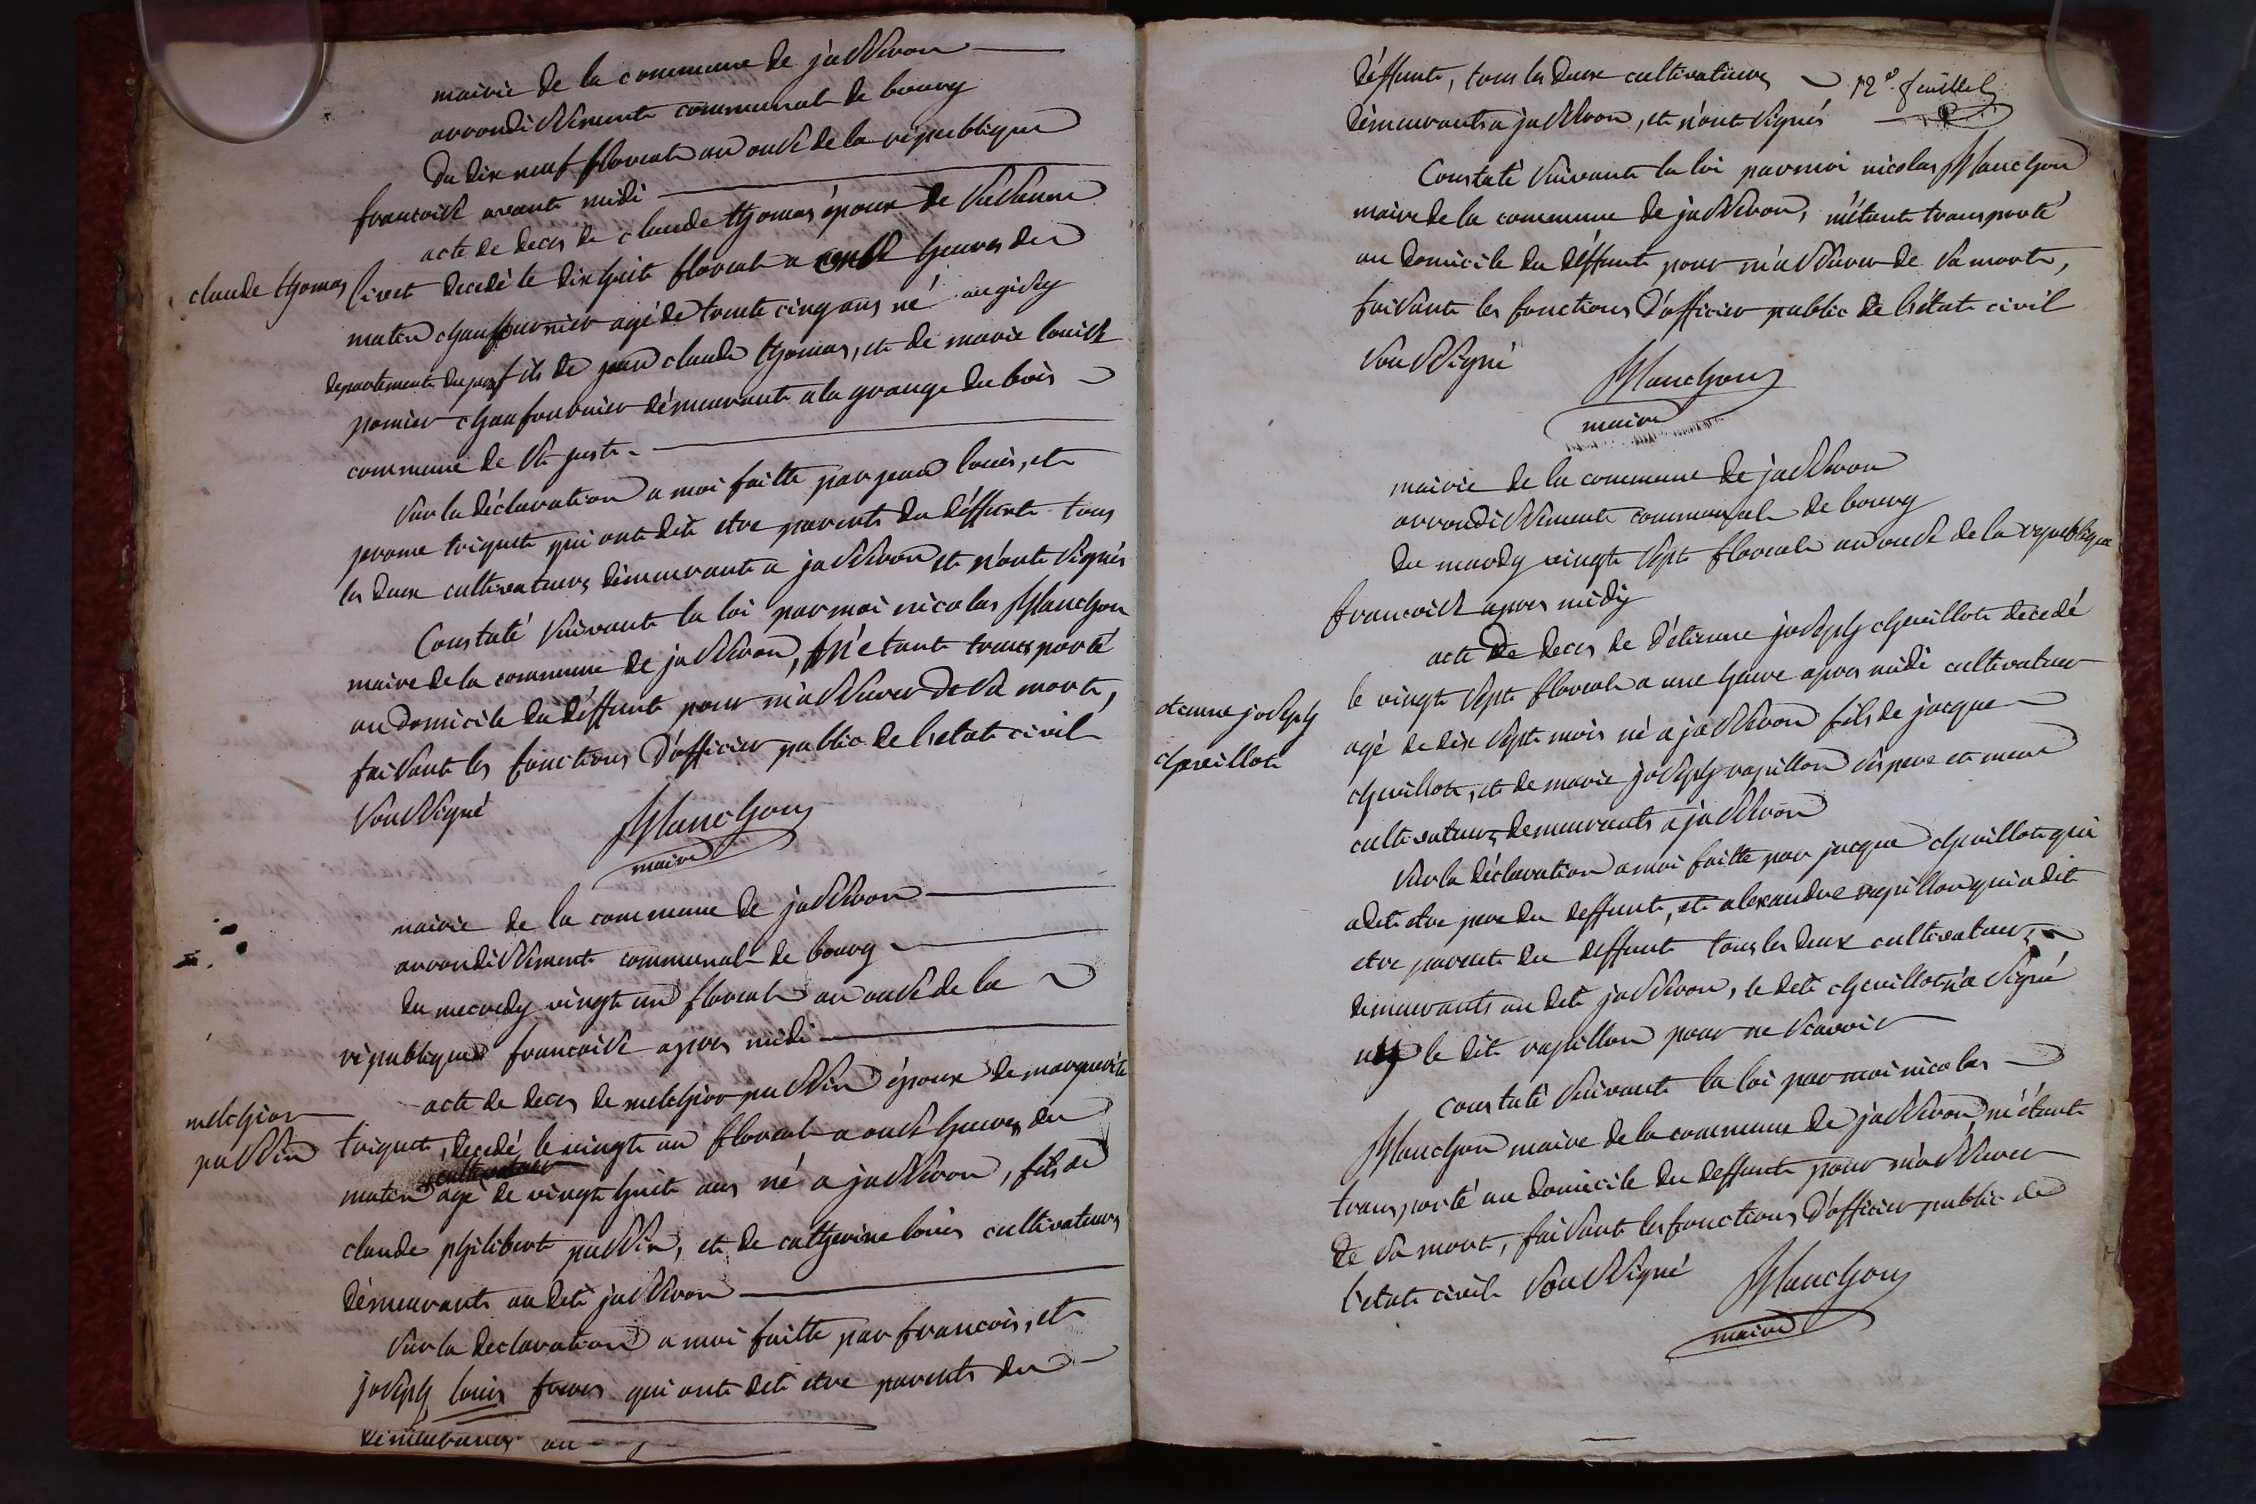 mairie de la commune de jasseron
arrondissement communal de bourg
du dix neuf floreal an onze de la république
francoise avant midi
acte de deces de claude thomas époux de susanne
claude thomas
livet decedé le dix huit floreal a onze heures du
matin chaufournier agé de trente cinq ans né
departement du fils de jean claude thomas, et de marie louise
pomier chaufournier démeurant a la grange du bois
commune de st just
sur la déclaration a moi faitte par jean louis, et
prome triquet qui ont dit etre parents du déffunt tous
les deux cultivateurs démeurant a jasseron et n'ont signés
Constaté suivant la loi par moi nicolas Manchon
maire de la commune de jasseron, m'étant transporté
au domicile du déffunt pour m'assurer de sa mort,
faisant les fonctions d'officier public de l'etat civil
soussigné
Manchon
maire
mairie de la commune de jasseron
arrondissement communal de bourg
du mecredy vingt un floreal an onze de la
république francoise apres midi
acte de deces de melchior pussin époux de marguerite
melchior
pussin
triquet, decedé le vingt un floreal a onze heures du
matin agé de vingt huit ans né a jasseron, fils de
claude philibert pussin, et de catherine louis cultivateurs
démeurants au dit jasseron
sur la declaration a moi faitte par francois, et
joseph louis freres qui ont dit etre parents du
déffunt, tous les deux cultivateurs
12e feuillet
démeurants a jasseron, et n'ont signés
Constaté suivant la loi par moi nicolas Manchon
maire de la commune de jasseron, m'étant transporté
au domicile du déffunt pour m'assurer de sa mort,
faisant les fonctions d'officier public de l'état civil
soussigné
Manchon
maire
mairie de la commune de jasseron
arrondissement communal de bourg
du mardy vingt sept floreal an onze de la république
francoise apres midy
acte de deces de d'étienne joseph chevillot decedé
le vingt sept floreal a une heure apres midi cultivateur
etienne joseph
chevillot
agé de dix sept mois né a jasseron fils de jacque
chevillot, et de marie joseph rapillon ses pere et mere
cultivateurs demeurants a jasseron
sur la déclaration a moi faitte par jacque chevillot qui
a dit etre pere du deffunt, et alexandre rapillon qui a dit
etre parent du deffunt tous les deux cultivateurs
démeurants au dit jasseron, le dit chevillot n'a signé
ny le dit rapillon pour ne scavoir
constaté suivant la loi par moi nicolas
Manchon maire de la commune de jasseron m'étant
transporté au domicile du deffunt pour m'assurer
de sa mort, faisant les fonctions d'officier public de
l'etat civil soussigné
Manchon
maire